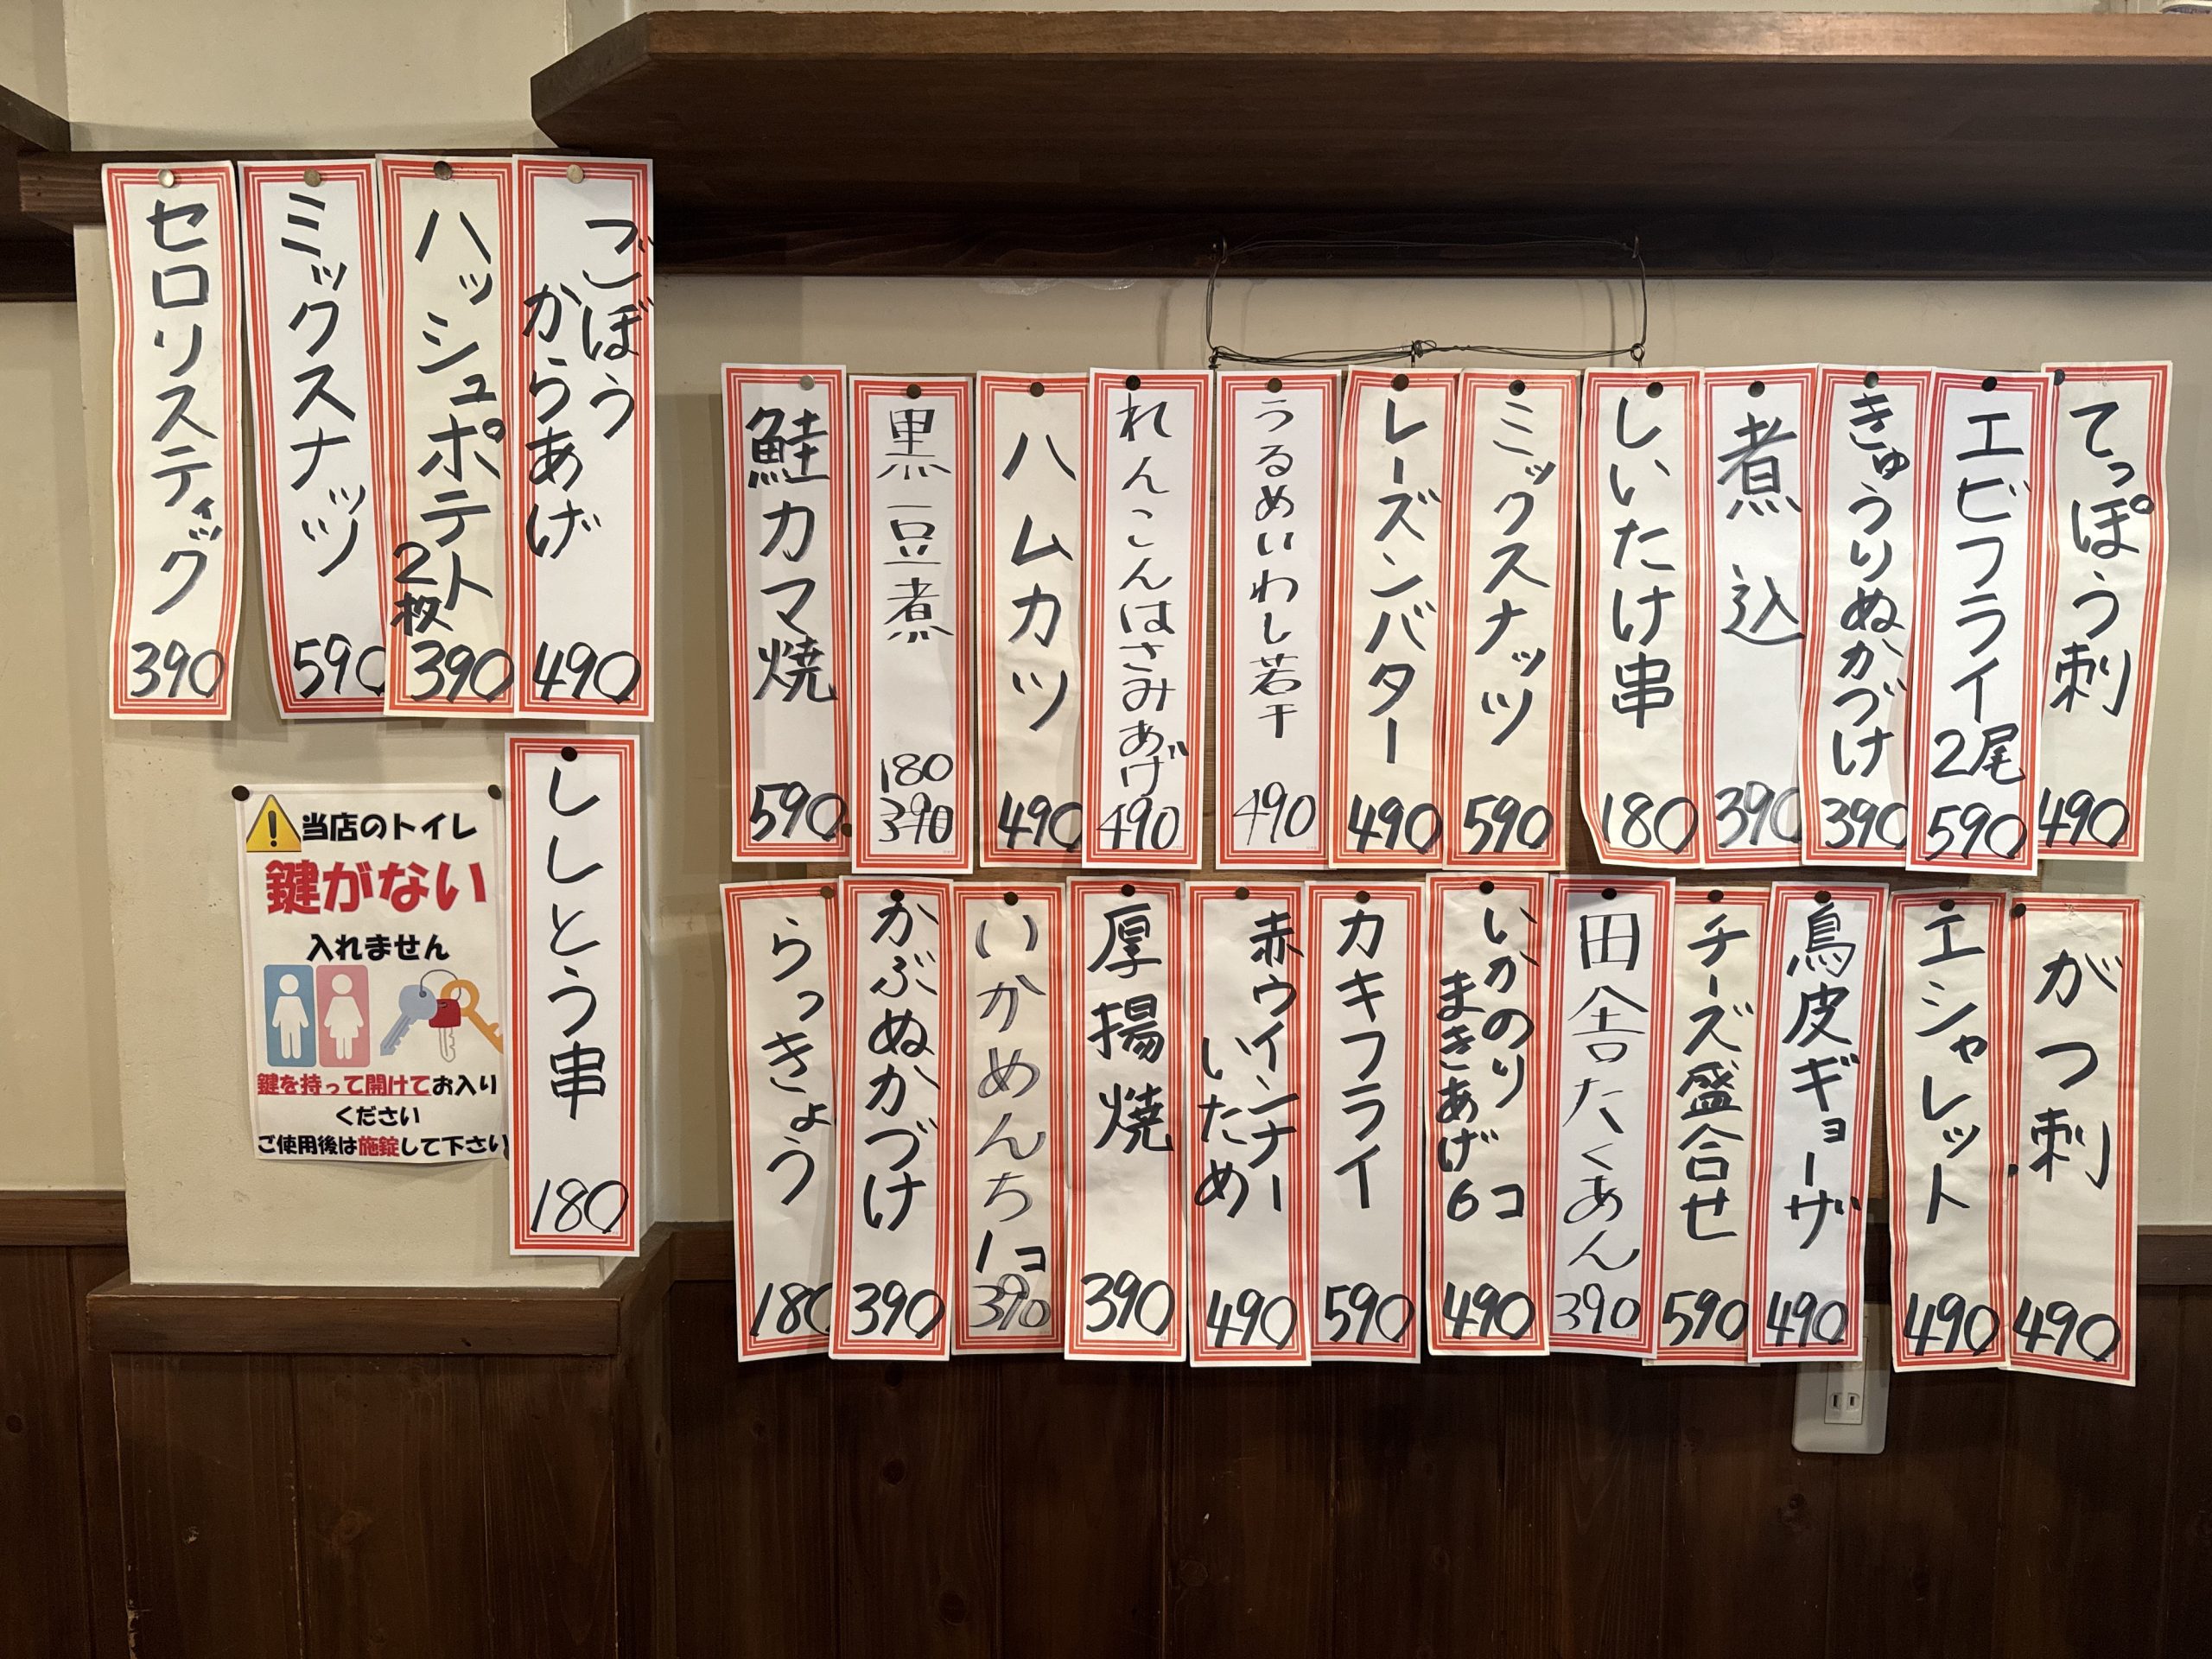 セロリスティック
390
ミックスナッツ
590
ハッシュポテト
2枚
390
ごぼう
からあげ
490
ししとう串
180
当店のトイレ
鍵がない
入れません
鍵を持って開けてお入り
ください
ご使用後は施錠して下さい
てっぽう刺
490
エビフライ
2尾
590
きゅうりぬかづけ
390
煮込
390
しいたけ串
180
ミックスナッツ
590
レーズンバター
490
うるめいわし若干
490
れんこんはさみあげ
490
ハムカツ
490
黒豆煮
180
390
鮭カマ焼
590
がつ刺
490
エシャレット
490
鳥皮ギョーザ
490
チーズ盛合せ
590
田舎たくあん
390
いかのり
まきあげ
6コ
490
カキフライ
590
赤ウインナー
いため
490
厚揚焼
390
いかめんち
1コ
390
かぶぬかづけ
390
らっきょう
180